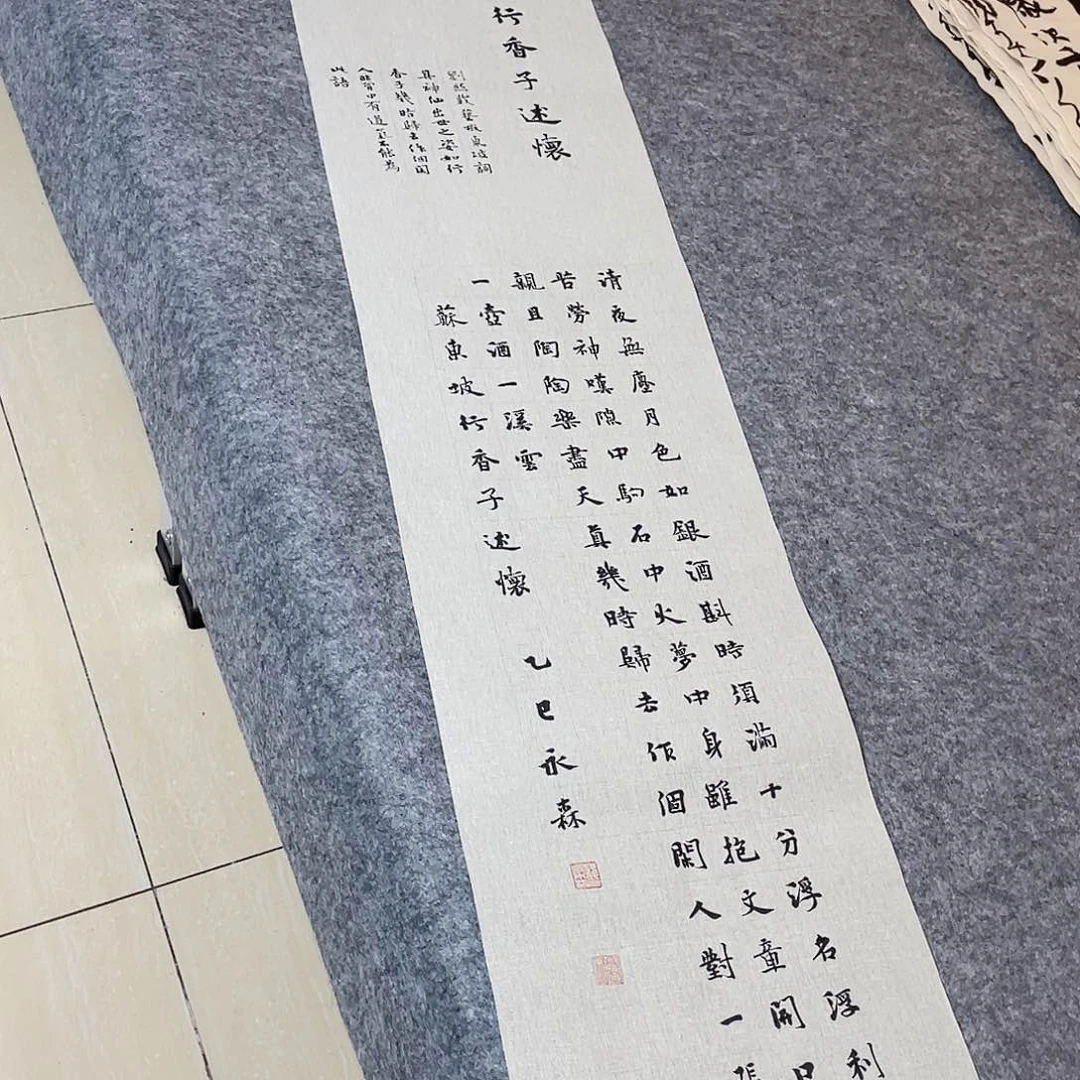 行香子述懷
劉熙載藝概東坡詞
具神仙出世之姿如行
香子幾時歸去作個閑
人胸中有道氣能為
此語
清夜無塵月色如銀酒斟時須滿十分浮名浮利
苦勞神嘆隙中駒石中火夢中身雖抱文章開口
親且陶陶樂盡天真幾時歸去作個閑人對一張
一壺酒一溪雲
蘇東坡行香子述懷 乙巳永森